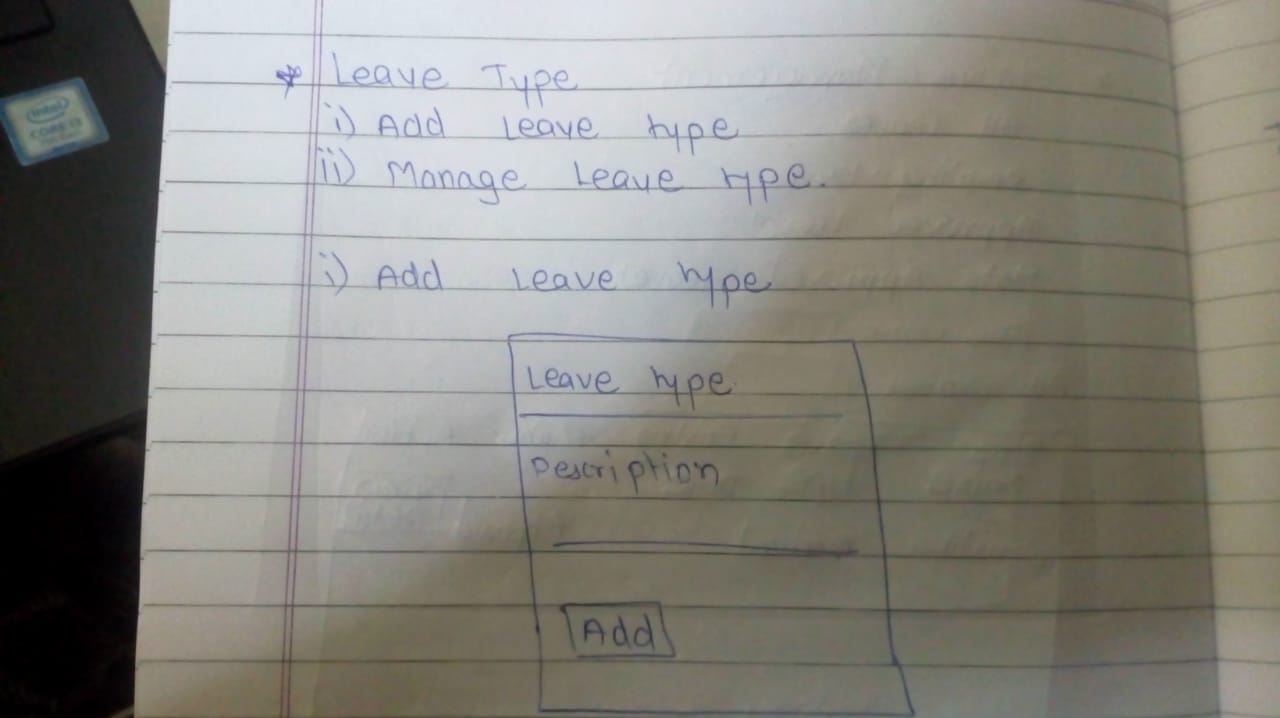 intel
CORE i3
* Leave Type
i) Add Leave type
ii) Manage Leave type.
i) Add Leave type
Leave type.
Description
Add